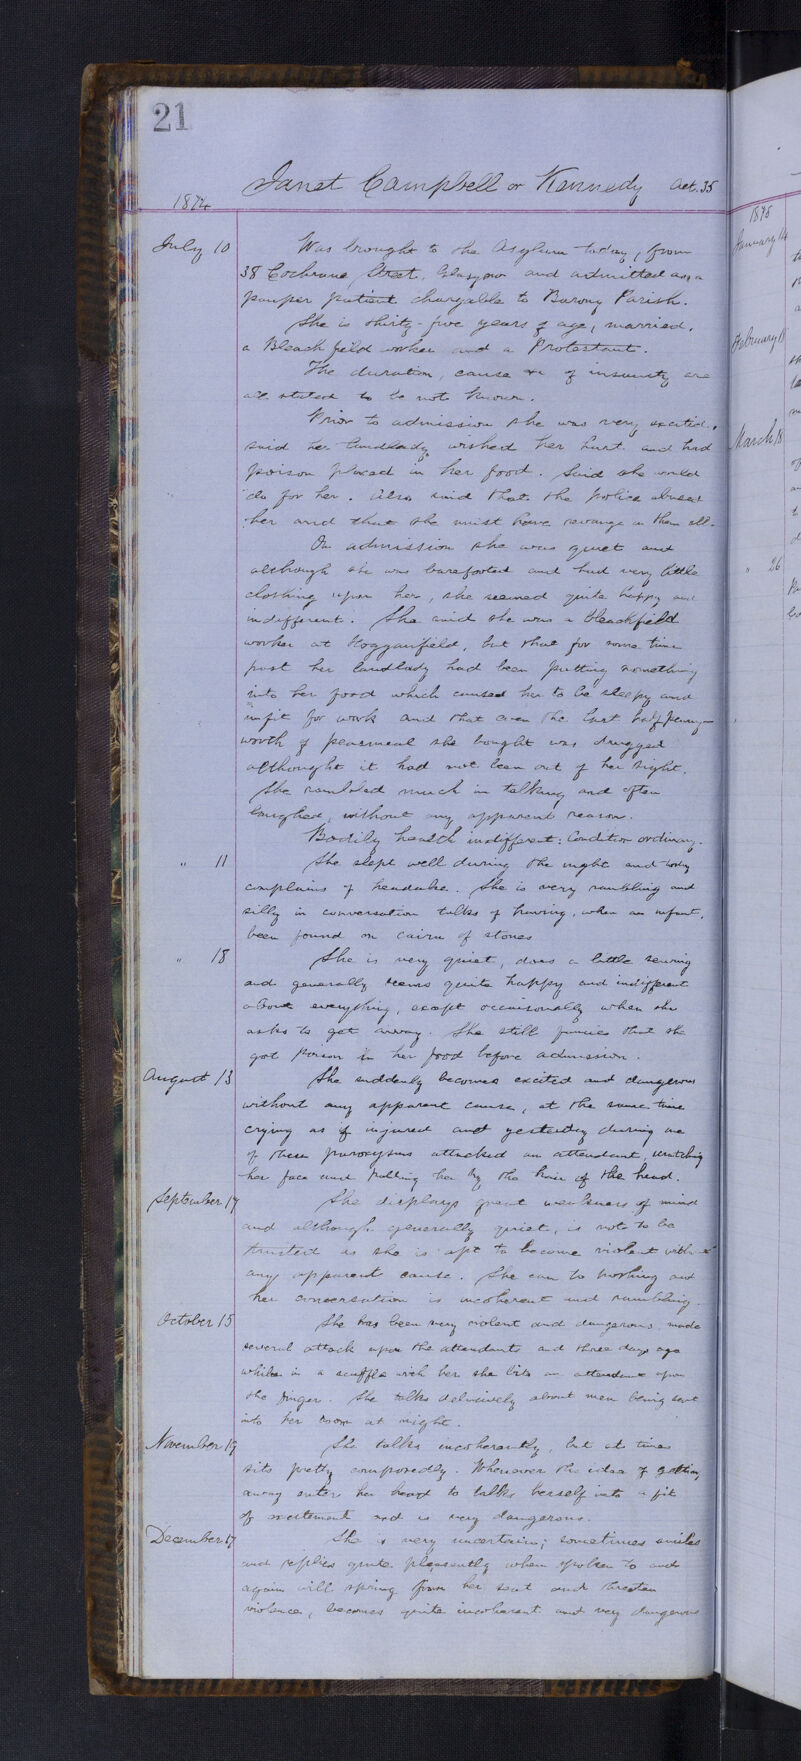 21
Janet Campbell or Kennedy aet. 35
1874
July 10 Was brought to the Asylum today, from
38 Cochrane Street, Glasgow and admitted as a
pauper patient chargable to Barony Parish.
She is thirty-five years of age, married,
a Bleachfield worker and a Protestant.
The duration, cause &c of insanity are
all stated to be not known.
Prior to admission she was very excited,
said her landlady wished her hurt and had
poison placed in her food. Said she would
do for her. Also said that the police abused
her and that she must have revenge on them all.
On admission she was quiet and
although she was barefooted and had very little
clothing upon her, she seemed quite happy and
indifferent. She said she was a bleachfield
worker at Hogganfield, but that for some time
past her landlady had been putting something
into her food which caused her to be sleepy and
unfit for work and that even the last halfpenny-
worth of peasemeal she bought was drugged
althought it had not been out of her sight.
She rambled much in talking and often
laughed, without any apparent reason.
Bodily health indifferent: Condition ordinary.
" 11 She slept well during the night and today
complains of headake. She is very rambling and
silly in conversation talks of having, when an infant,
been found on cairn of stones
" 18 She is very quiet, does a little sewing
and generally seems quite happy and indifferent
about everything, except occasionally when she
asks to get away. She still fancies that she
got poison in her food before admission.
August 13 She suddenly becomes excited and dangerous
without any apparent cause, at the same time
crying as if injured and yesterday during one
of these paroxysms attacked an attendant, scratching
her face and pulling her by the hair of the head.
September 17 She displays great weakness of mind
and although generally quiet, is not to be
trusted as she is apt to become violent without
any apparent cause. She can do nothing and
her conversation is incoherent and rambling.
October 15 She has been very violent and dangerous, made
several attack upon the attendants and three days ago
while in a scuffle with her she bit an attendant upon
the finger. She talks delusively about men being sent
into her room at night.
November 19 She talks incoherently, but at times
sits pretty composedly. Whenever the idea of getting
away enter her head to talks herself into a fit
of excitement and is very dangerous.
December 17 She is very uncertain; sometimes smiles
and replies quite pleasantly when spoken to and
again will spring from her seat and threaten
violence, becomes quite incoherent and very dangerous
1875
January 14
February 18
March 18
" 26